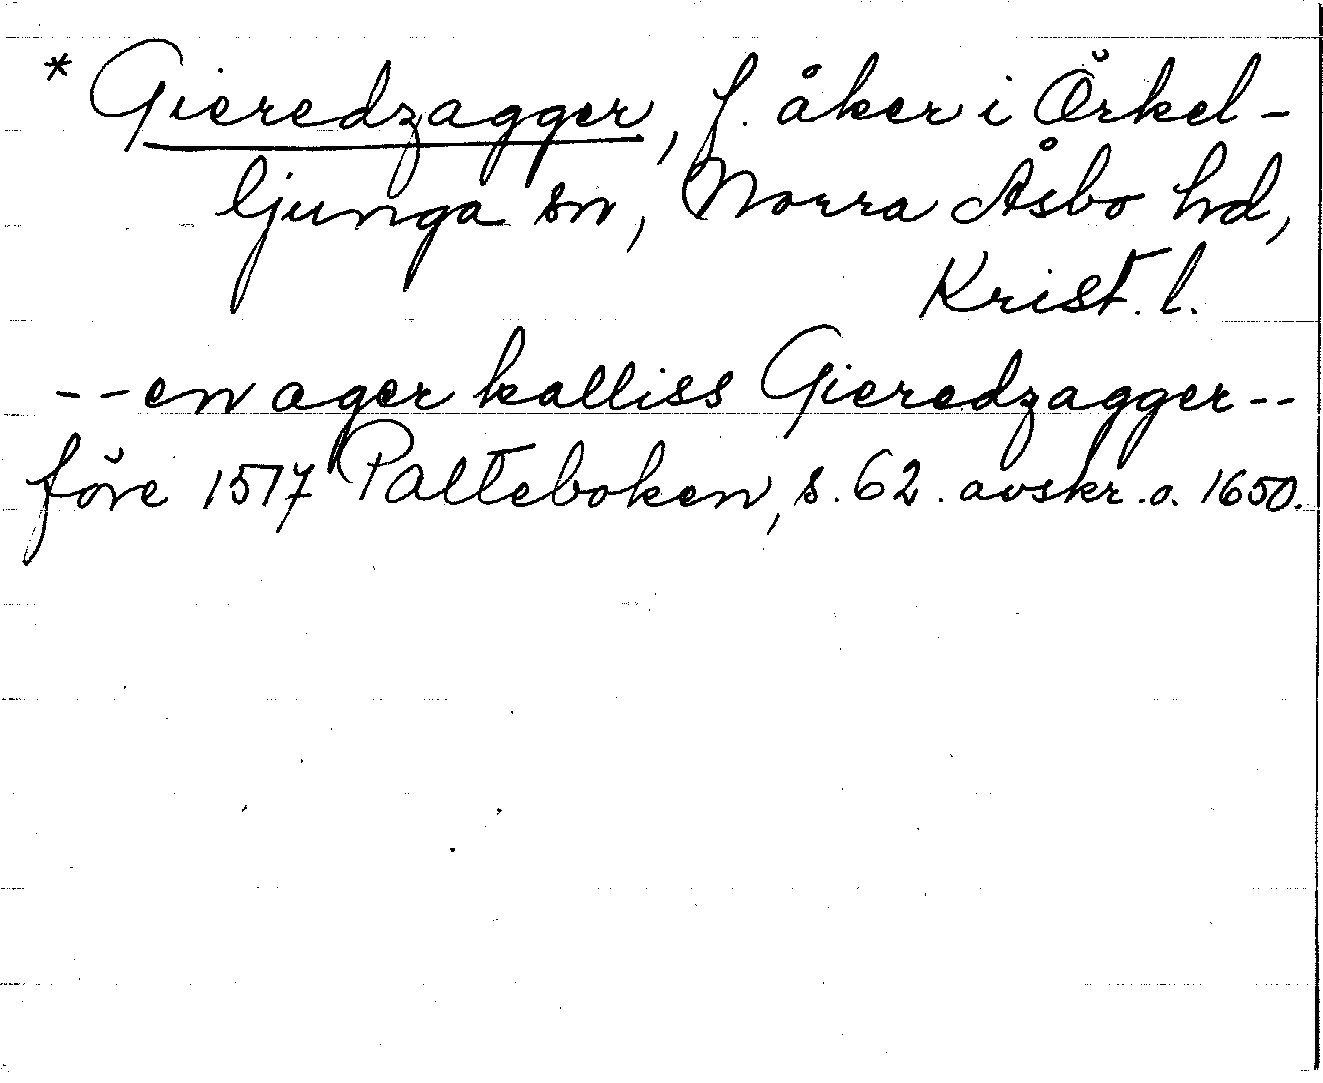 * Gieredzagger, f. åker i Örkel-
ljunga sn, Norra Åsbo hd,
Krist. l.
-- en ager kalliss Gieredzagger --
före 1517 Palteboken, s. 62. avskr. o. 1650.